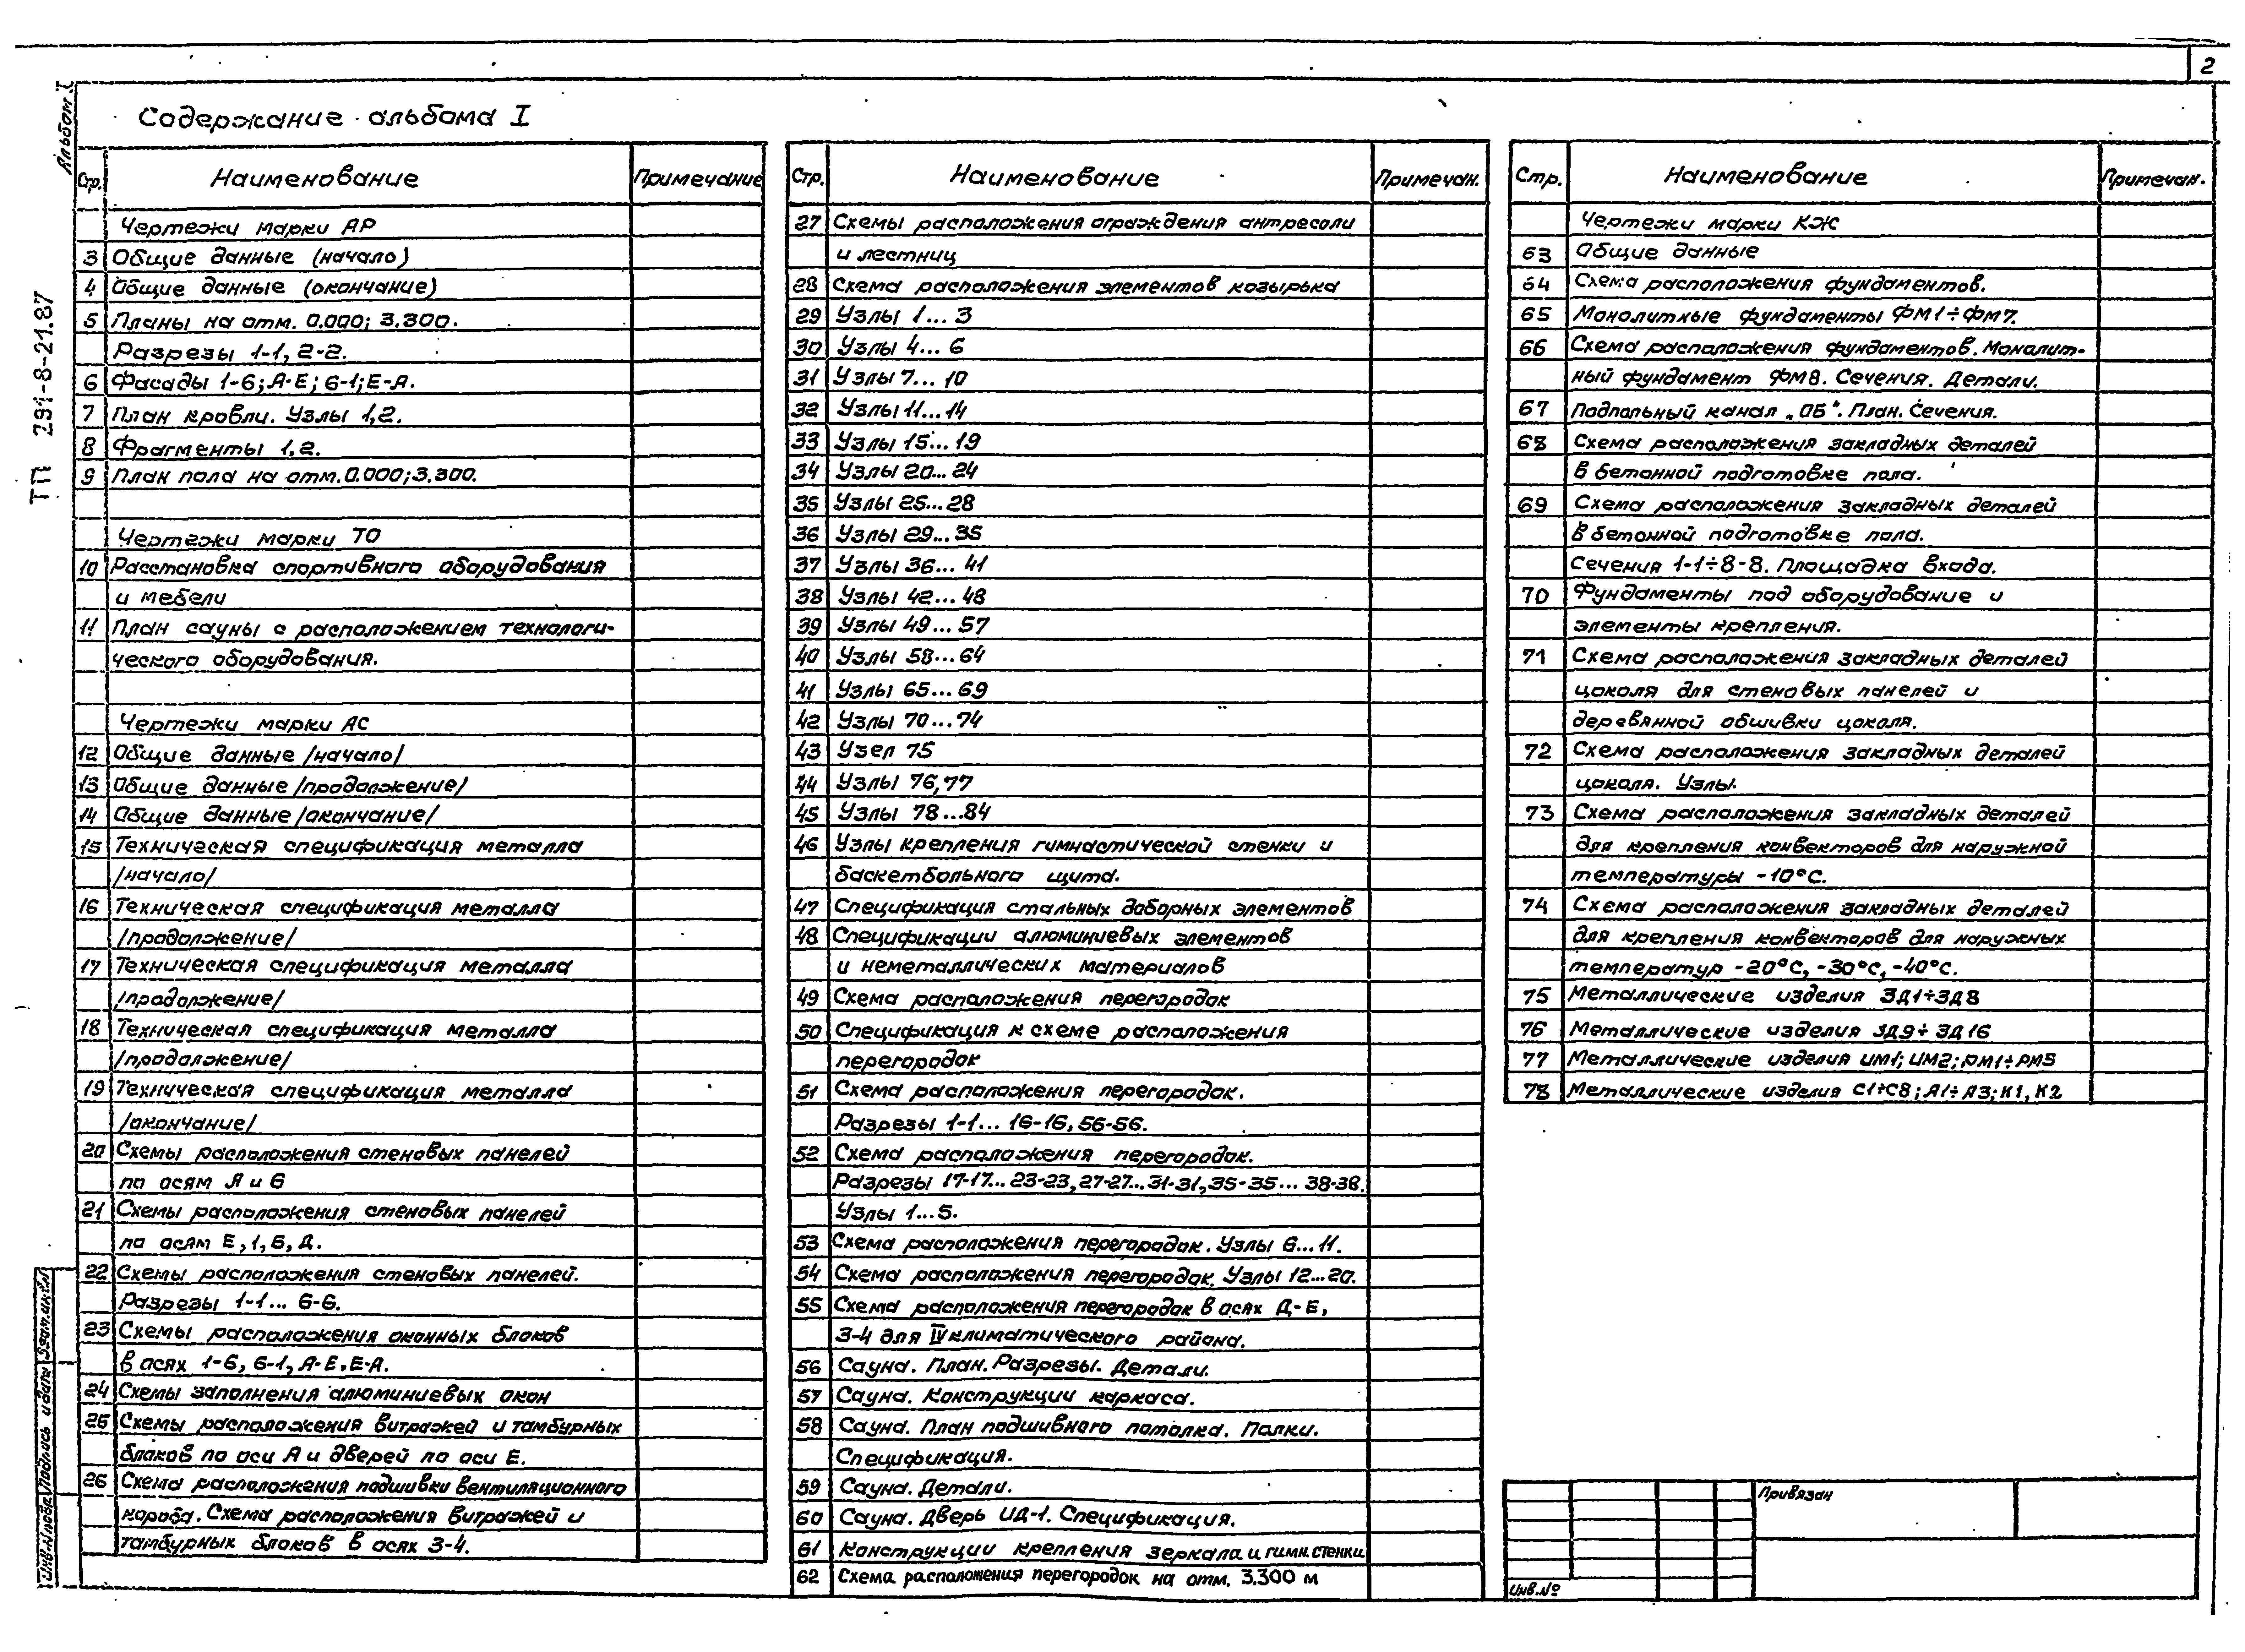 2
Альбом I
ТП 291-8-21.87
Содержание альбома I
Стр. Наименование Примечание
Чертежи марки АР
3 Общие данные (начало)
4 Общие данные (окончание)
5 Планы на отм. 0.000; 3.300.
Разрезы 1-1, 2-2.
6 Фасады 1-6; А-Е; 6-1; Е-А.
7 План кровли. Узлы 1,2.
8 Фрагменты 1,2.
9 План пола на отм. 0.000; 3.300.
Чертежи марки ТО
10 Расстановка спортивного оборудования
и мебели
11 План сауны с расположением технологи-
ческого оборудования.
Чертежи марки АС
12 Общие данные /начало/
13 Общие данные /продолжение/
14 Общие данные /окончание/
15 Техническая спецификация металла
/начало/
16 Техническая спецификация металла
/продолжение/
17 Техническая спецификация металла
/продолжение/
18 Техническая спецификация металла
/продолжение/
19 Техническая спецификация металла
/окончание/
20 Схемы расположения стеновых панелей
по осям А и 6
21 Схемы расположения стеновых панелей
по осям Е, 1, Б, Д.
22 Схемы расположения стеновых панелей.
Разрезы 1-1... 6-6.
23 Схемы расположения оконных блоков
в осях 1-6, 6-1, А-Е, Е-А.
24 Схемы заполнения алюминиевых окон
25 Схемы расположения витражей и тамбурных
блоков по оси А и дверей по оси Е.
26 Схема расположения подшивки вентиляционного
короба. Схема расположения витражей и
тамбурных блоков в осях 3-4.
Стр. Наименование Примечан.
27 Схемы расположения ограждения антресоли
и лестниц
28 Схема расположения элементов козырька
29 Узлы 1... 3
30 Узлы 4... 6
31 Узлы 7... 10
32 Узлы 11... 14
33 Узлы 15... 19
34 Узлы 20... 24
35 Узлы 25... 28
36 Узлы 29... 35
37 Узлы 36... 41
38 Узлы 42... 48
39 Узлы 49... 57
40 Узлы 58... 64
41 Узлы 65... 69
42 Узлы 70... 74
43 Узел 75
44 Узлы 76, 77
45 Узлы 78...84
46 Узлы крепления гимнастической стенки и
баскетбольного щита.
47 Спецификация стальных доборных элементов
48 Спецификации алюминиевых элементов
и неметаллических материалов
49 Схема расположения перегородок
50 Спецификация к схеме расположения
перегородок
51 Схема расположения перегородок.
Разрезы 1-1... 16-16, 56-56.
52 Схема расположения перегородок.
Разрезы 17-17... 23-23, 27-27... 31-31, 35-35... 38-38.
Узлы 1...5.
53 Схема расположения перегородок. Узлы 6... 11.
54 Схема расположения перегородок. Узлы 12...20.
55 Схема расположения перегородок в осях Д-Е,
3-4 для IV климатического района.
56 Сауна. План. Разрезы. Детали.
57 Сауна. Конструкции каркаса.
58 Сауна. План подшивного потолка. Полки.
Спецификация.
59 Сауна. Детали.
60 Сауна. Дверь ИД-1. Спецификация.
61 Конструкции крепления зеркала и гимн. стенки
62 Схема расположения перегородок на отм. 3.300 м
Стр. Наименование Примечан.
Чертежи марки КЖ
63 Общие данные
64 Схема расположения фундаментов.
65 Монолитные фундаменты ФМ1÷ФМ7.
66 Схема расположения фундаментов. Монолит-
ный фундамент ФМ8. Сечения. Детали.
67 Подпольный канал „ОБ“. План. Сечения.
68 Схема расположения закладных деталей
в бетонной подготовке пола.
69 Схема расположения закладных деталей
в бетонной подготовке пола.
Сечения 1-1÷8-8. Площадка входа.
70 Фундаменты под оборудование и
элементы крепления.
71 Схема расположения закладных деталей
цоколя для стеновых панелей и
деревянной обшивки цоколя.
72 Схема расположения закладных деталей
цоколя. Узлы.
73 Схема расположения закладных деталей
для крепления конвекторов для наружной
температуры -10°С.
74 Схема расположения закладных деталей
для крепления конвекторов для наружных
температур -20°С, -30°С, -40°С.
75 Металлические изделия ЗД1÷ЗД8
76 Металлические изделия ЗД9÷ ЗД16
77 Металлические изделия ИМ1; ИМ2; РМ1÷РМ3
78 Металлические изделия С1÷С8; А1÷А3; К1, К2
Привязан
Инв.№
Инв.№ подл. Подпись и дата Взам.инв.№